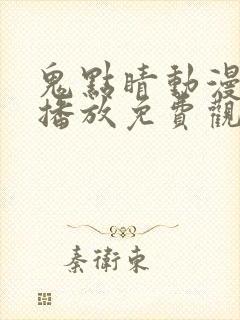 鬼點睛動漫
播放免費觀
秦衛東